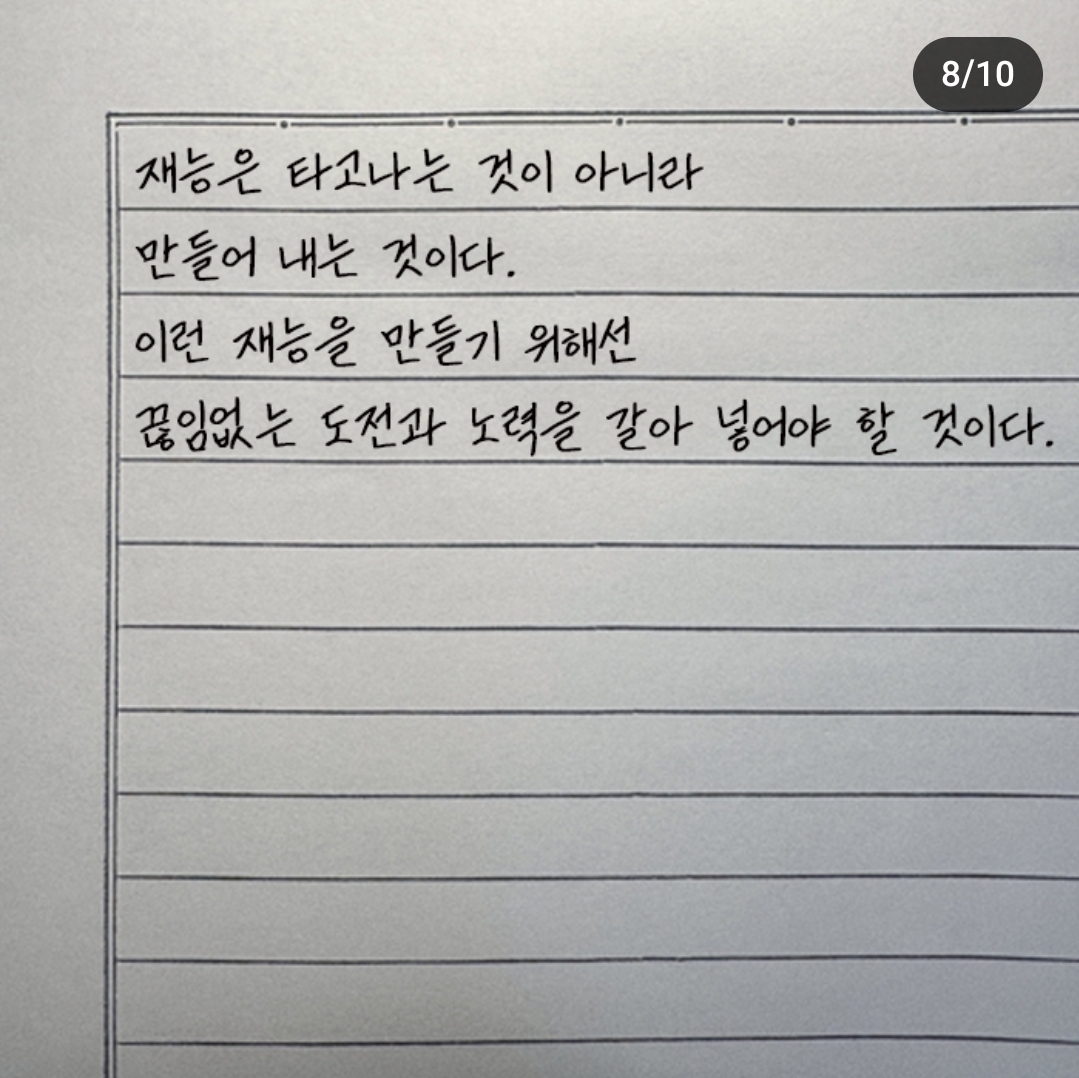 8/10
재능은 타고나는 것이 아니라
만들어 내는 것이다.
이런 재능을 만들기 위해선
끊임없는 도전과 노력을 갈아 넣어야 할 것이다.